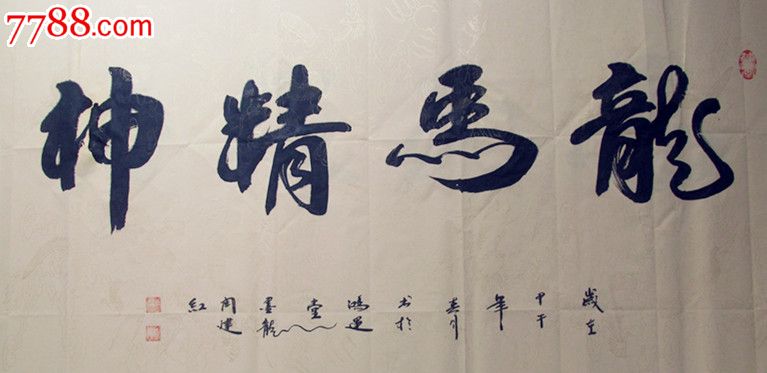 7788.com
龍馬精神
歲在甲午年春月书於鴻運堂墨龍周建紅